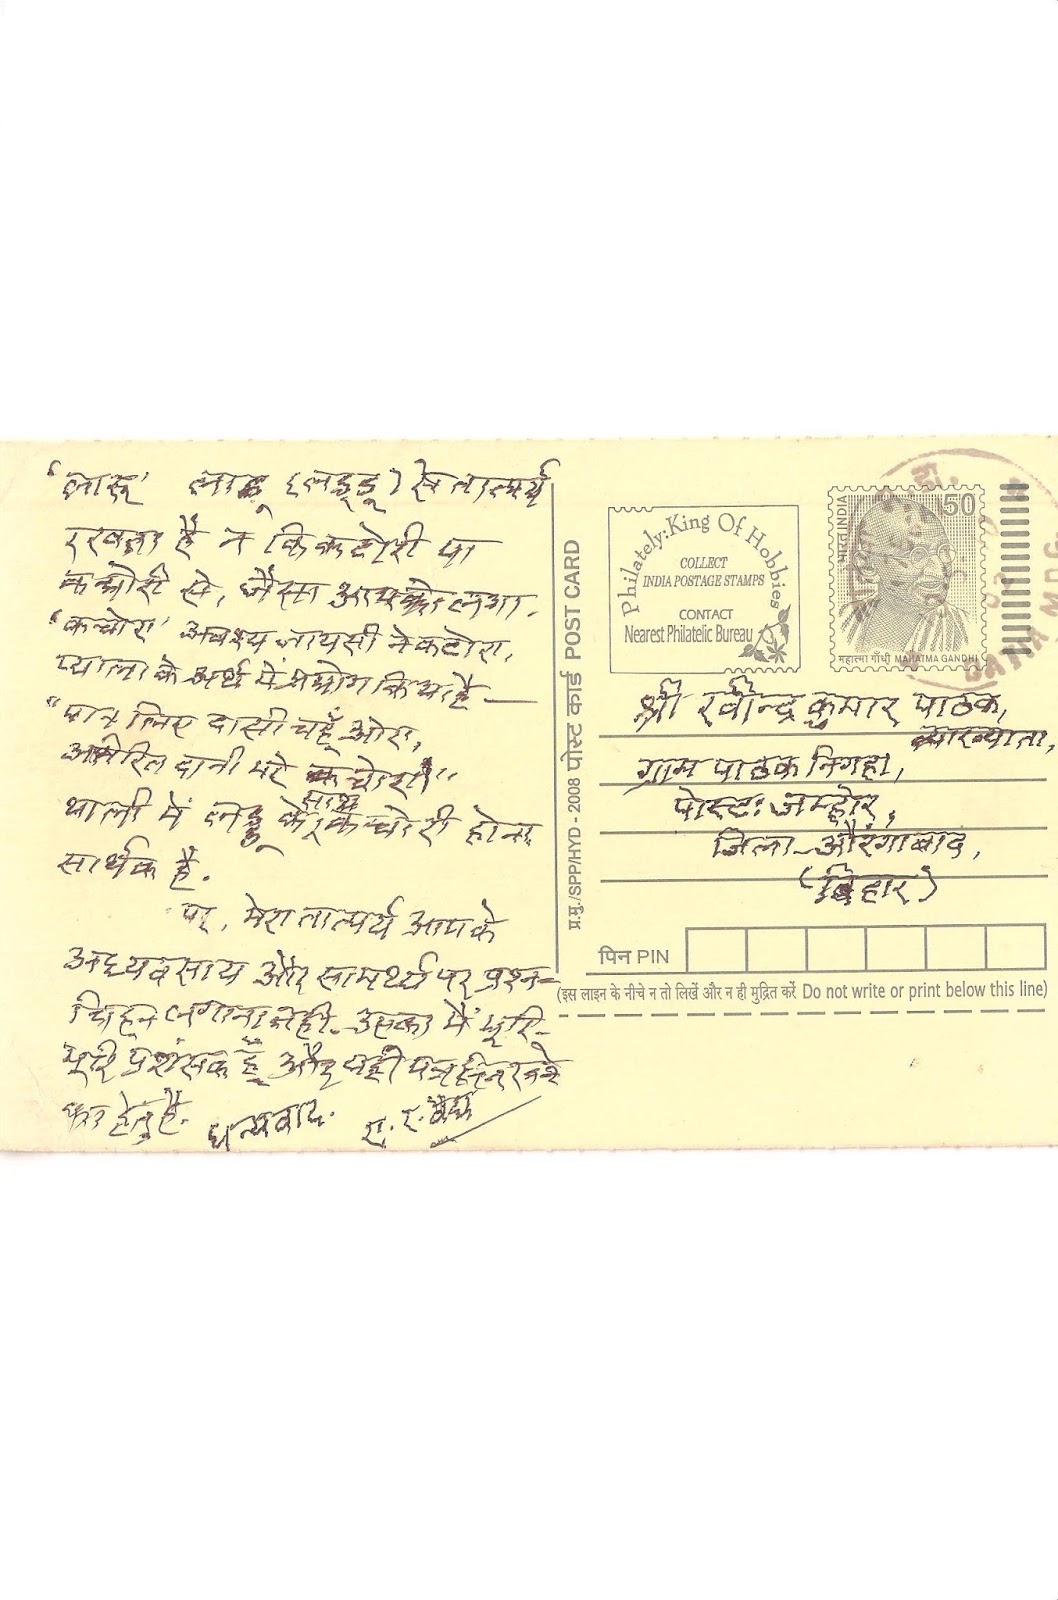 'लारू' लाडू (लड्डू) से तात्पर्य
रखता है न कि कटोरी या
कचोरी से, जैसा आपको लगा.
'कचोरा' अवश्य जायसी ने कटोरा,
प्याला के अर्थ में प्रयोग किया है —
"पान लिए दासी चहुँ ओरा,
अमिरित दानी भरे कचोरा"
थाली में लड्डू के साथ कचोरी होना
सार्थक है.
पर, मेरा तात्पर्य आपके
अध्यवसाय और सामर्थ्य पर प्रश्न-
चिह्न लगाना नहीं. उसका मैं भूरि-
भूरि प्रशंसक हूँ और यही पत्र
का हेतु है. धन्यवाद.
Philately: King Of Hobbies
COLLECT
INDIA POSTAGE STAMPS
CONTACT
Nearest Philatelic Bureau
भारत INDIA
50
महात्मा गाँधी MAHATMA GANDHI
प्र.मु./SPP/HYD - 2008 पोस्ट कार्ड POST CARD
श्री रवीन्द्र कुमार पाठक,
व्याख्याता,
ग्राम पाठक बिगहा,
पोस्ट: जम्होर,
जिला - औरंगाबाद,
(बिहार)
पिन PIN
(इस लाइन के नीचे न तो लिखें और न ही मुद्रित करें Do not write or print below this line)